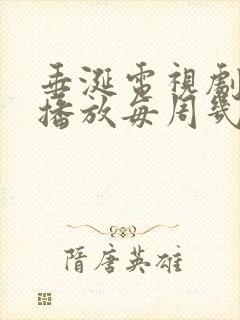 垂涎電視劇
播放每周幾
隋唐英雄